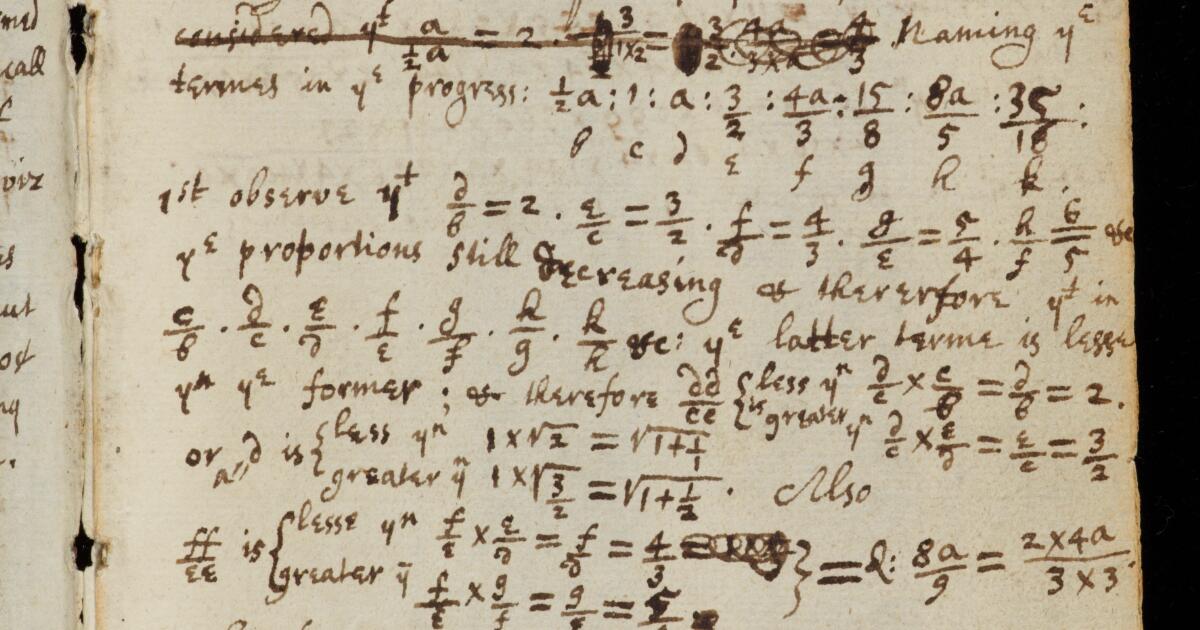 considered yᵗ a/½a = 2 . 3/1×2 = 3/2 . 4a/3×a = 4/3 . Naming yᵉ
termes in yᵉ progress: ½a : 1 : a : 3/2 : 4a/3 : 15/8 : 8a/5 : 35/16 :
b c d e f g h k .
1st observe yᵗ d/b = 2 . e/c = 3/2 . f/d = 4/3 . g/e = 5/4 . h/f 6/5 &c
yᵉ proportions still decreasing & thererfore yᵗ in
c/b . d/c . e/d . f/e . g/f . h/g . k/h &c: yᵉ latter terme is lesse
yⁿ yᵉ former ; & therefore dd/cc is { less yⁿ d/c × c/b = d/b = 2 .
greater yⁿ d/c × e/d = e/c = 3/2
or a″, d is { less yⁿ 1×√2 = √1+1/1
greater yⁿ 1×√3/2 = √1+1/2 . Also
ff/ee is { lesse yⁿ f/e × e/d = f/d = 4/3
greater yⁿ f/e × g/f = g/e = 5/4 } = &: 8a/9 = 2×4a/3×3